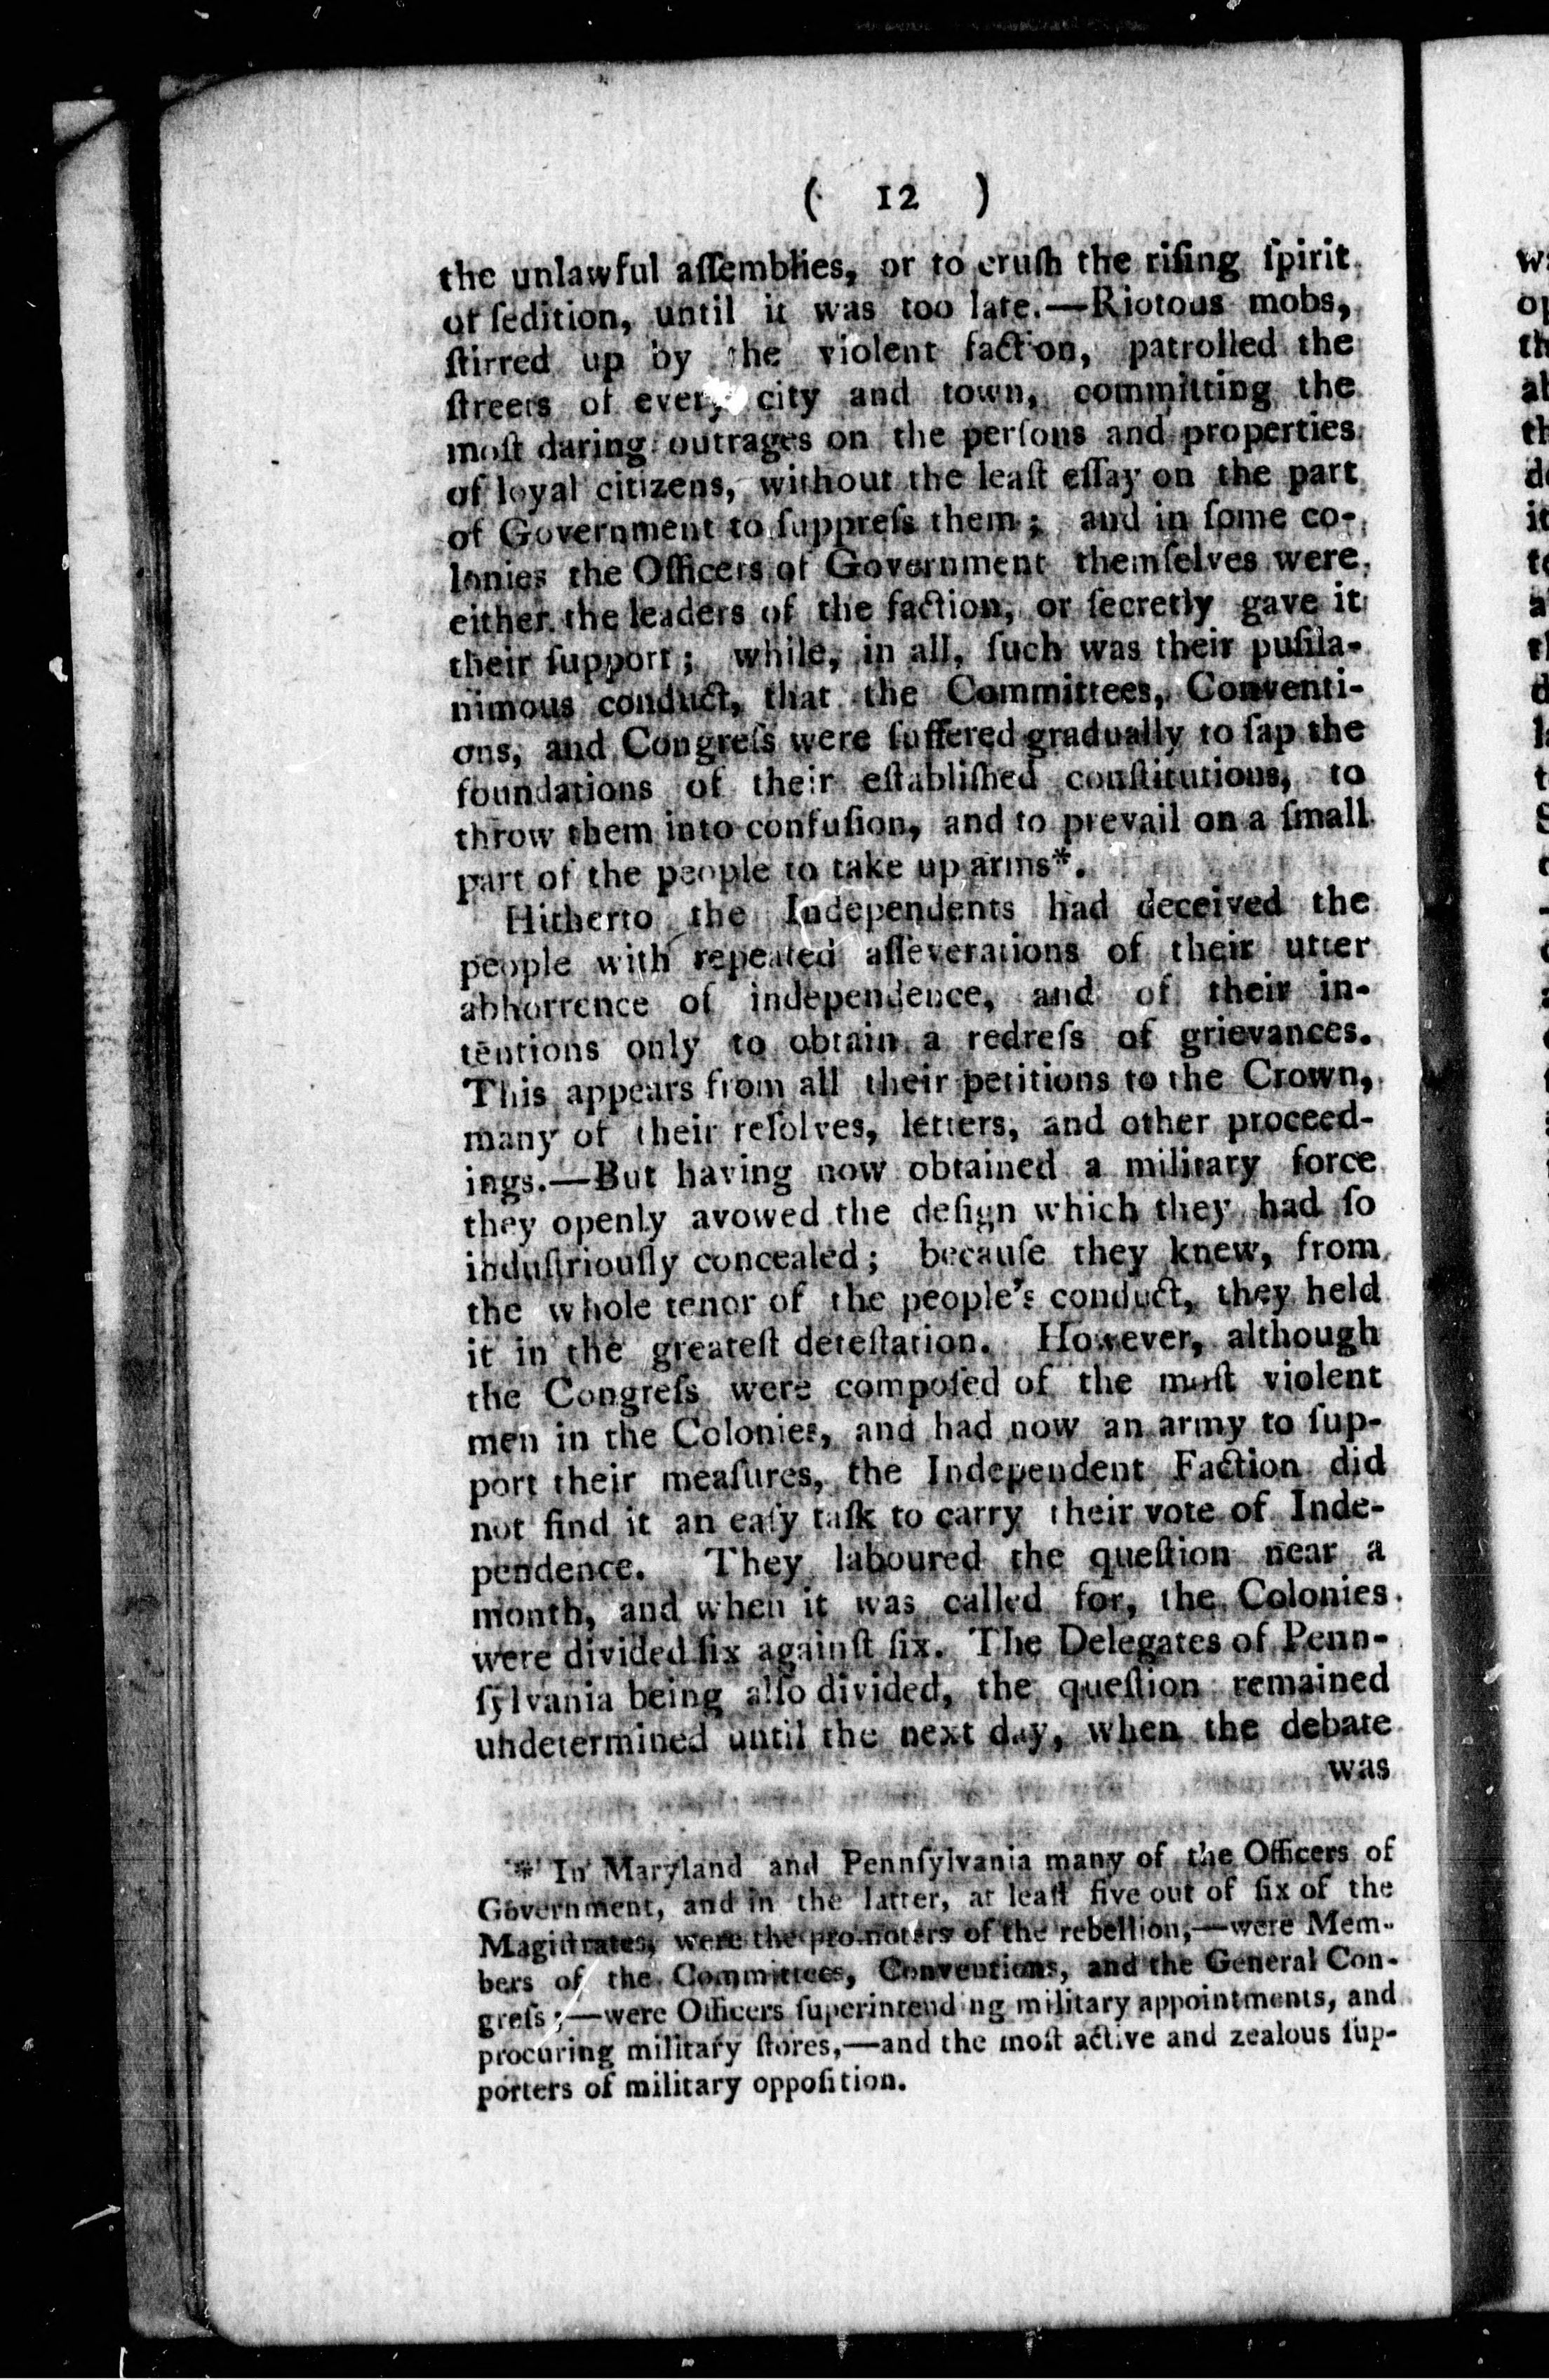 ( 12 )
the unlawful aſſemblies, or to cruſh the riſing ſpirit
of ſedition, until it was too late.—Riotous mobs,
ſtirred up by the violent faction, patrolled the
ſtreets of every city and town, committing the
moſt daring outrages on the perſons and properties
of loyal citizens, without the leaſt eſſay on the part
of Government to ſuppreſs them; and in ſome co-
lonies the Officers of Government themſelves were
either the leaders of the faction, or ſecretly gave it
their ſupport; while, in all, ſuch was their puſila-
nimous conduct, that the Committees, Conventi-
ons, and Congreſs were ſuffered gradually to ſap the
foundations of their eſtabliſhed conſtitutions, to
throw them into confuſion, and to prevail on a ſmall
part of the people to take up arms*.
Hitherto the Independents had deceived the
people with repeated aſſeverations of their utter
abhorrence of independence, and of their in-
tentions only to obtain a redreſs of grievances.
This appears from all their petitions to the Crown,
many of their reſolves, letters, and other proceed-
ings.—But having now obtained a military force
they openly avowed the deſign which they had ſo
induſtriouſly concealed; becauſe they knew, from
the whole tenor of the people's conduct, they held
it in the greateſt deteſtation. However, although
the Congreſs were compoſed of the moſt violent
men in the Colonies, and had now an army to ſup-
port their meaſures, the Independent Faction did
not find it an eaſy taſk to carry their vote of Inde-
pendence. They laboured the queſtion near a
month, and when it was called for, the Colonies
were divided ſix againſt ſix. The Delegates of Penn-
ſylvania being alſo divided, the queſtion remained
undetermined until the next day, when the debate
was
* In Maryland and Pennſylvania many of the Officers of
Government, and in the latter, at leaſt five out of ſix of the
Magiſtrates, were the promoters of the rebellion,—were Mem-
bers of the Committees, Conventions, and the General Con-
greſs;—were Officers ſuperintending military appointments, and
procuring military ſtores,—and the moſt active and zealous ſup-
porters of military oppoſition.